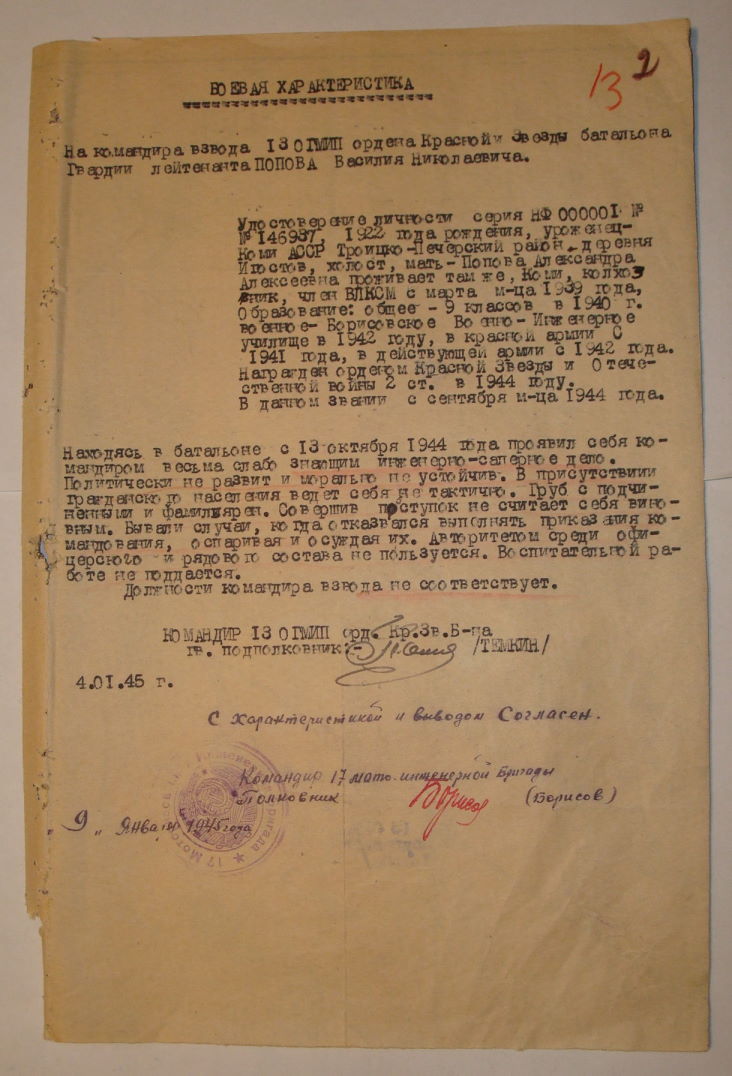 13 2
БОЕВАЯ ХАРАКТЕРИСТИКА
На командира взвода 13 ОГМИП ордена Красной Звезды батальона
Гвардии лейтенанта ПОПОВА Василия Николаевича.
Удостоверение личности серия НФ 000001 №
№ 146937, 1922 года рождения, уроженец-
Коми АССР Троицко-Печерский район, деревня
холост, мать- Попова Александра
Алексеевна проживает там же, Коми, колхоз
ник, член ВЛКСМ с марта м-ца 1939 года,
Образование: общее - 9 классов в 1940 г.
военное- Борисовское Военно-Инженерное
училище в 1942 году, в красной армии С
1941 года, в действующей армии с 1942 года.
Награжден орденом Красной Звезды и Отече-
ственной войны 2 ст. в 1944 году.
В данном звании с сентября м-ца 1944 года.
Находясь в батальоне с 13 октября 1944 года проявил себя ко-
мандиром весьма слабо знающим инженерно-саперное дело.
Политически не развит и морально не устойчив. В присутствиии
гражданского населения ведет себя не тактично. Груб с подчи-
ненными и фамилиярен. Совершив поступок не считает себя вино-
вным. Бывали случаи, когда отказвался выполнять приказания ко-
мандования, оспаривая и осуждая их. Авторитетом среди офи-
церского и рядового состава не пользуется. Воспитательной ра-
боте не поддается.
Должности командира взвода не соответствует.
КОМАНДИР 13 ОГМИП орд. Кр.Зв.Б-на
гв. подполковник:- /ТЕМКИН/
4.01.45 г.
С характеристикой и выводом Согласен.
Командир 17 мото-инженерной Бригады
Полковник Борисов (Борисов)
"9" Января 1945 года
17 Мото